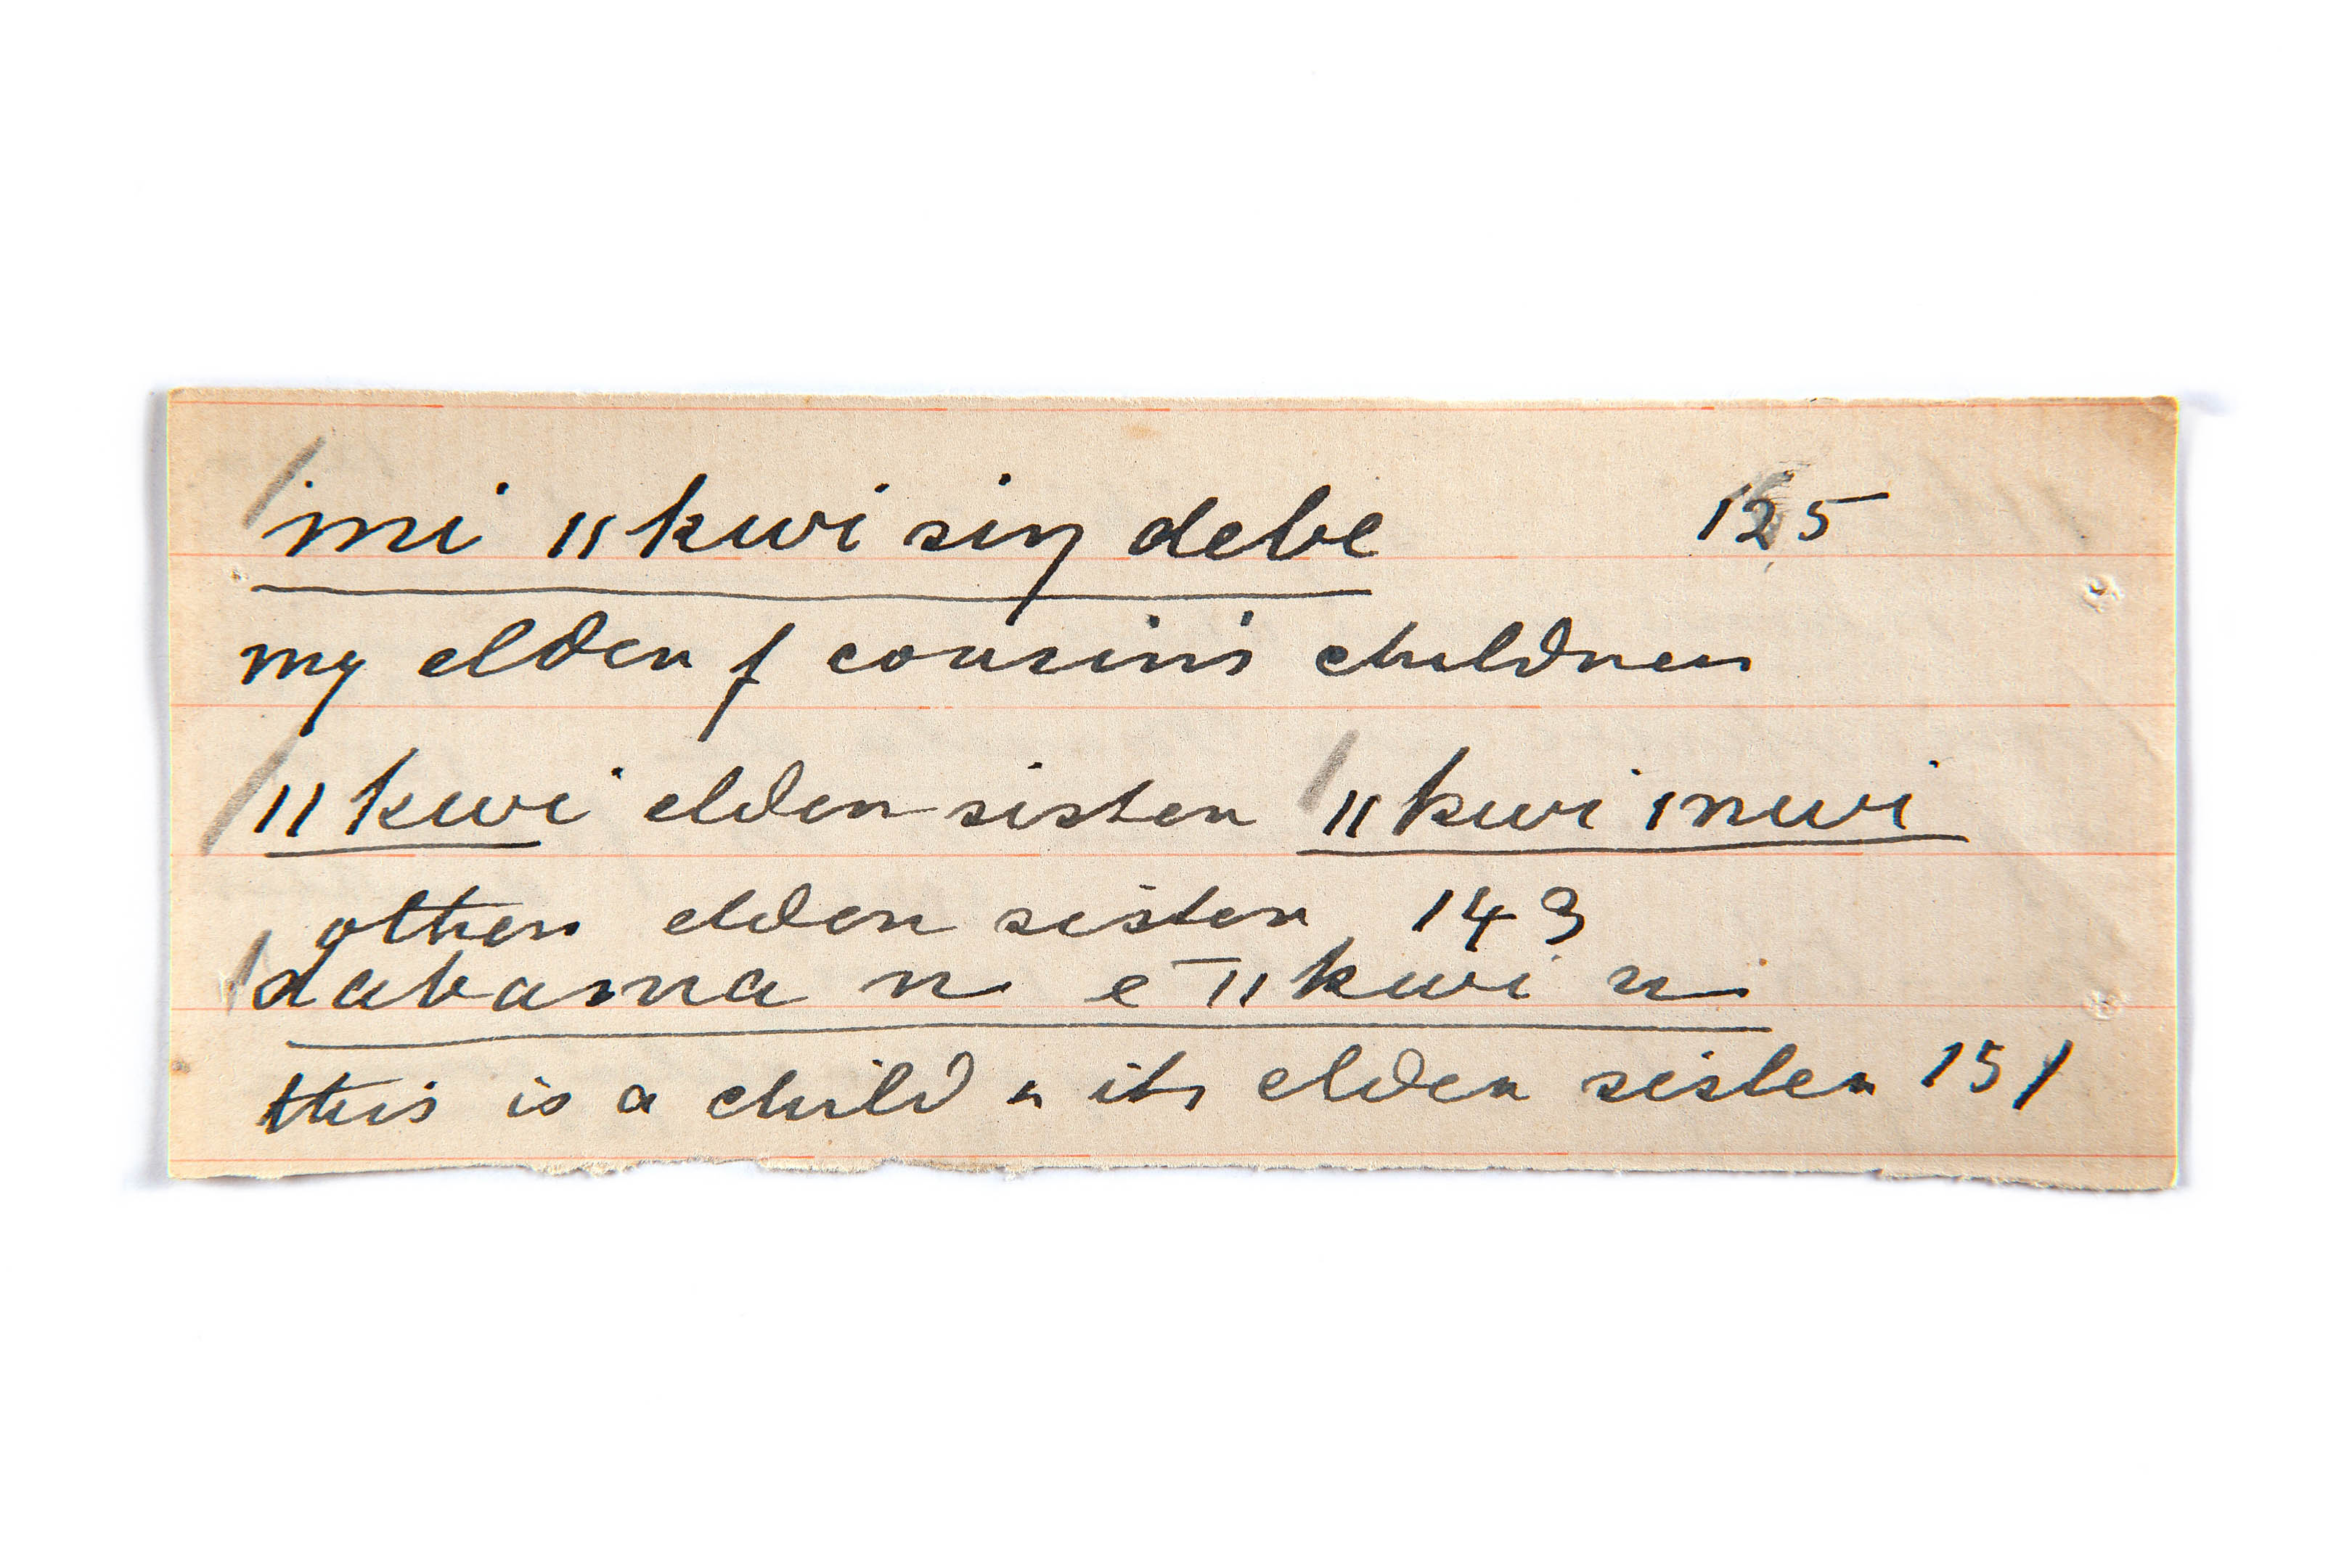 mi ǁkwi siŋ debe 125
my elder f cousin's children
ǁkwi elder sister ǁkwi ǀnwi
other elder sister 143
dabama n e ǁkwi n
this is a child & its elder sister 151